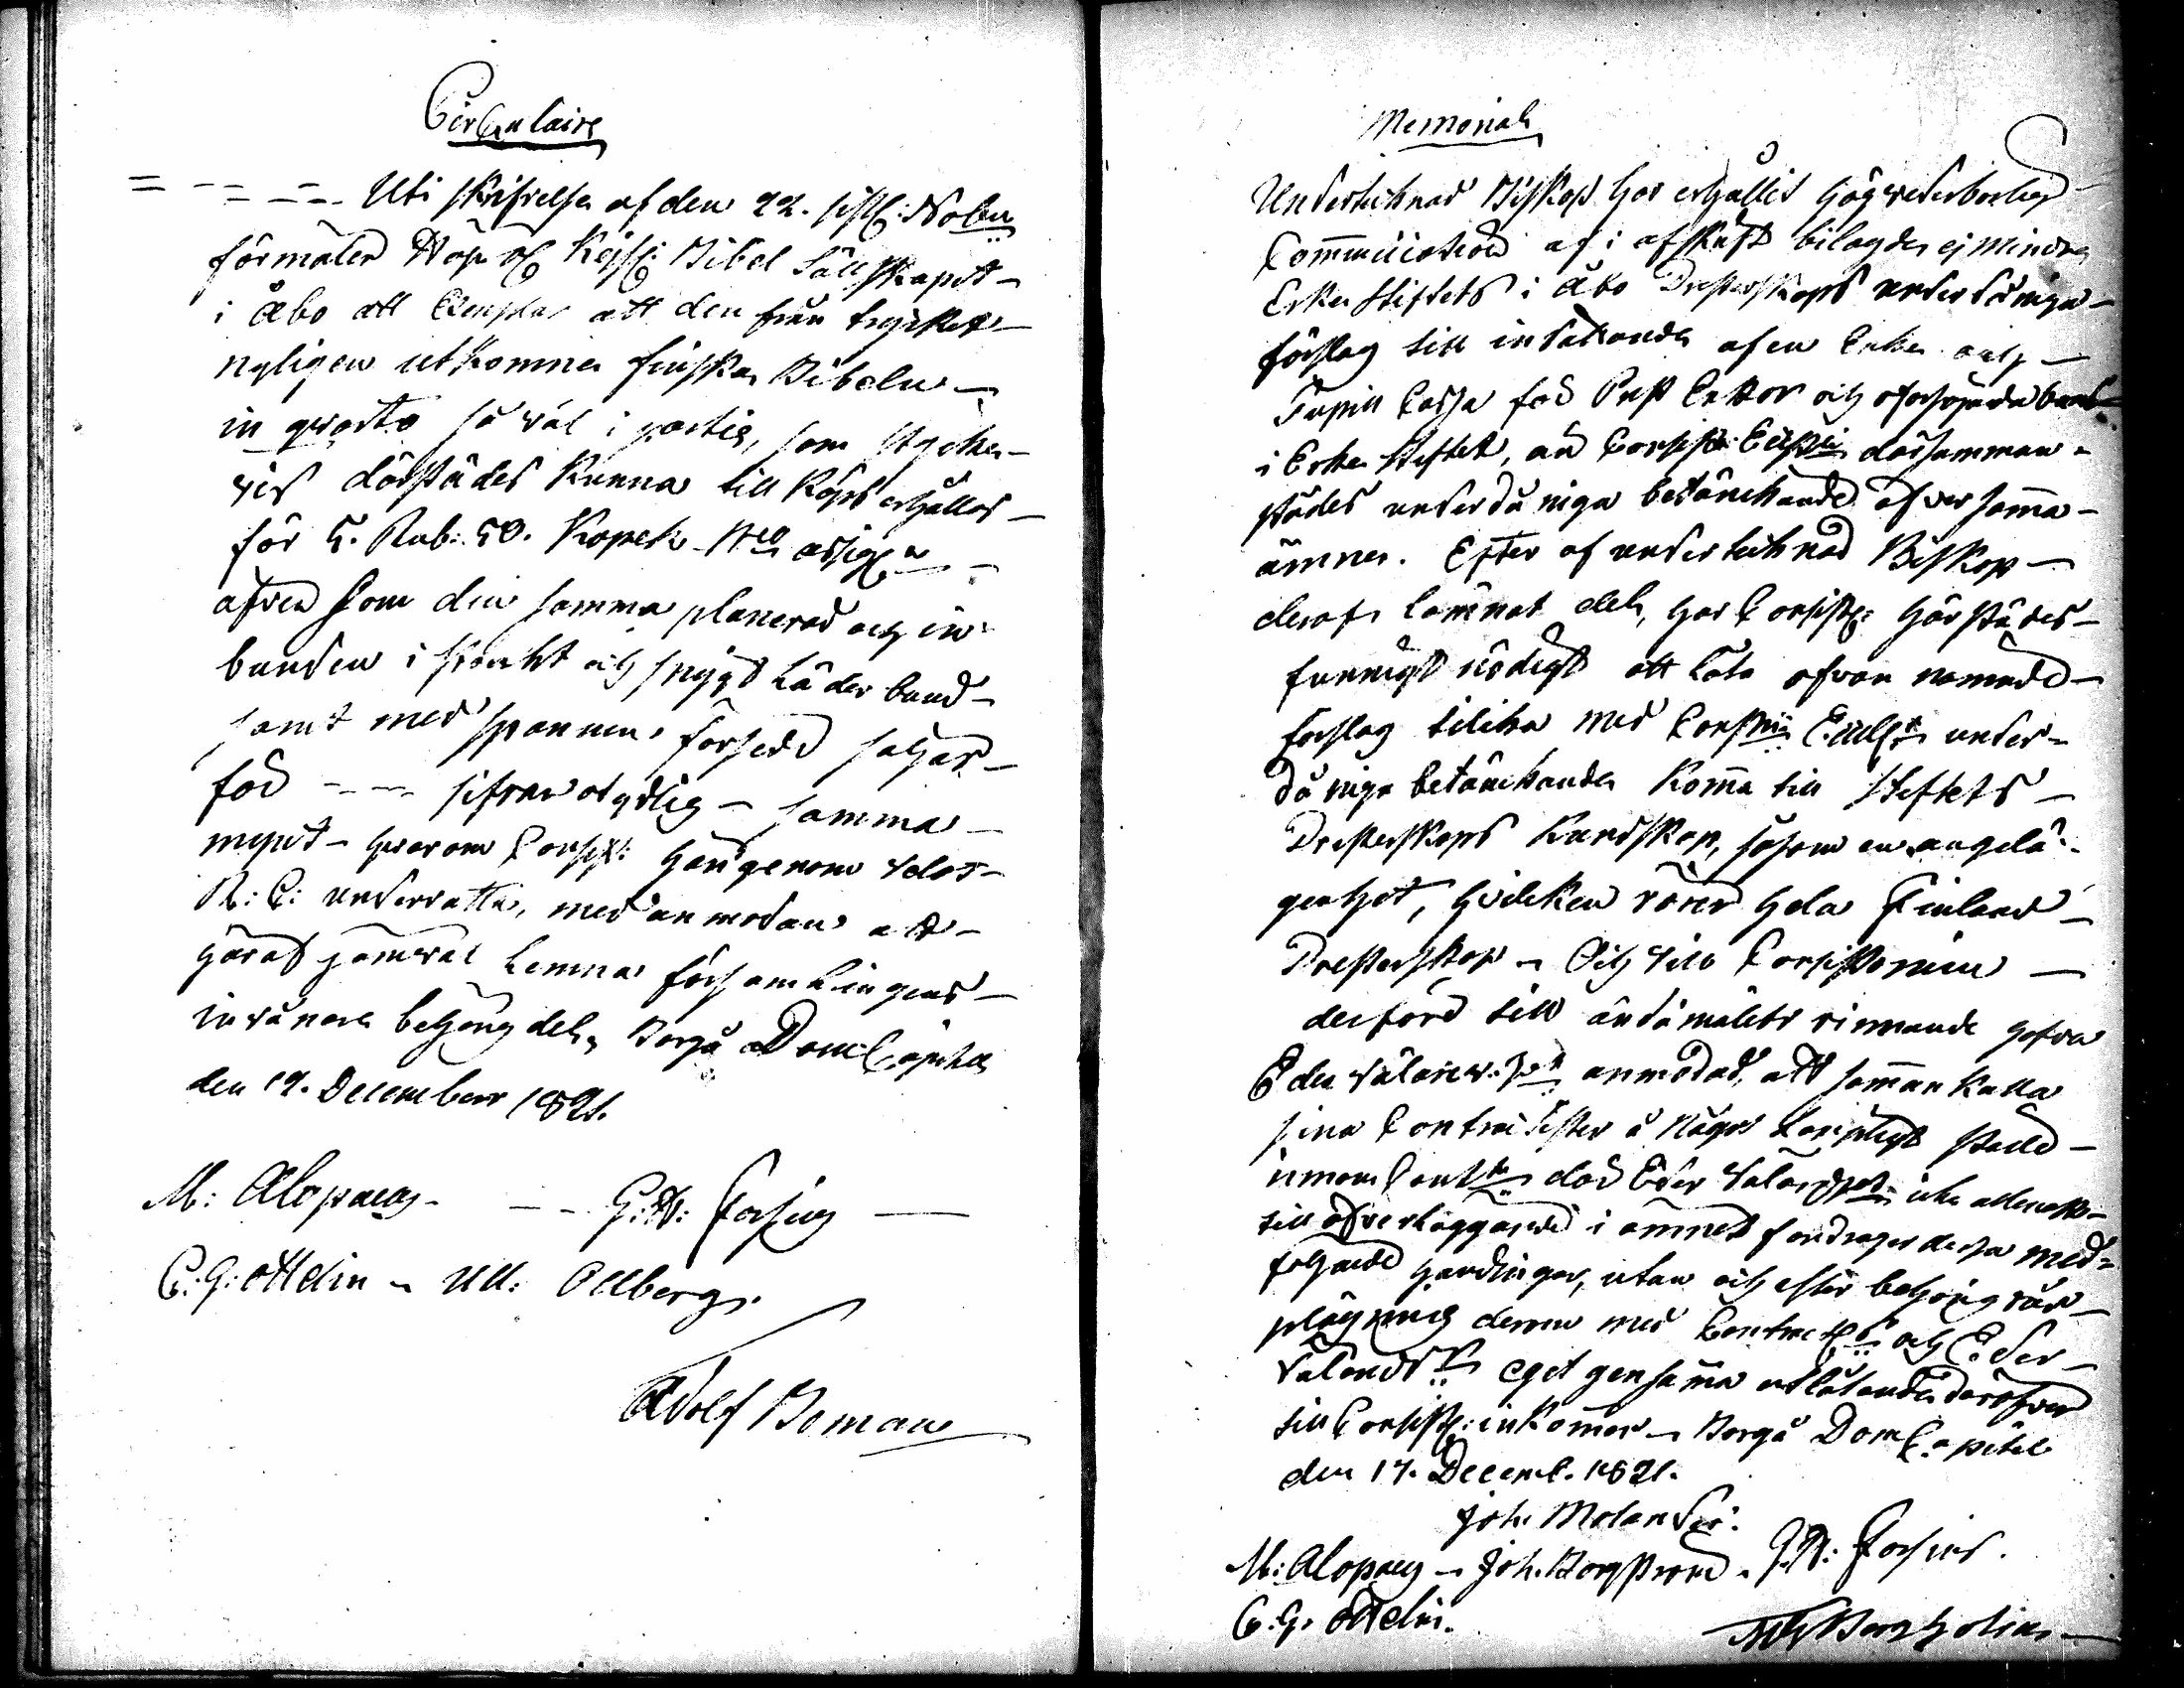 Circulaire
= - = - = - Uti skrifvelse af den 22. sistl: Novbr
förmäler Höglofl Kejserl: Bibel Sällskapet
i Åbo att Exemplar att den från trycket
nyligen utkomna finska Bibeln
in qvarto så väl i partie, som stycke-
vis därstädes kunna till köps erhållas
för 5. Rub: 50. Kopek Bco assign:
äfven som den samma planerad och in-
bunden i starkt och snyggt Läder band
samt med spännen försedd
för - - - samma
mynt - hvarom Consist: härigenom
R: C: underrättar, med anmodan att
häraf jemväl lemna församlingens
invånare behörig del, Borgå Dom Capitel
den 19. December 1821.
M: Alopaeus - - - G: W: Forsius
C: G: Ottelin - Ull: Ollberg.
Adolf Boman
Memorial
Undertecknad Biskop har erhållit hög vederbörlig
Communication af i afskrift bilagde ej mindre
Erke Stiftets i Åbo Presterskaps underdåniga
förslag till inrättande af en Enke och
Pupill Cassa för Prest Enkor och barn
i Erke Stiftet, än Consist: Eccles: därsamman-
städes underdåniga betänkande öfver samma
ämne. Efter af undertecknad Biskop
deraf lämnat del, har Consist: härstädes
funnigt nödigt att låta ofvan nämnde
förslag tilika med Consist: Eccles: under-
dåniga betänkande komma till Stiftets
Presterskaps kundskap, såsom en angelä-
genhet, hvilken rörer hela Finland
Presterskap - Och vill Consistorium
derföre till ändamålets vinnande hafva
Eder Välärev:het anmodad, att samman kalla
sina Contracts å någor lämpligt ställe
inom Contr: där Eder Välärev:het icke allenast
till öfverläggande i ämnet föredrager dessa med-
följande handlingar, utan och efter behörig råd-
plägning derom med Contract och Eder
Välärev eget gensamma utlåtande däröfver
till Consist: inkommer - Borgå Dom Capitel
den 17. Decemb. 1821.
Joh. Molander.
M: Alopaeus - Joh. Borgström - G: W: Forsius.
C. G. Ottelin.
Bergholm